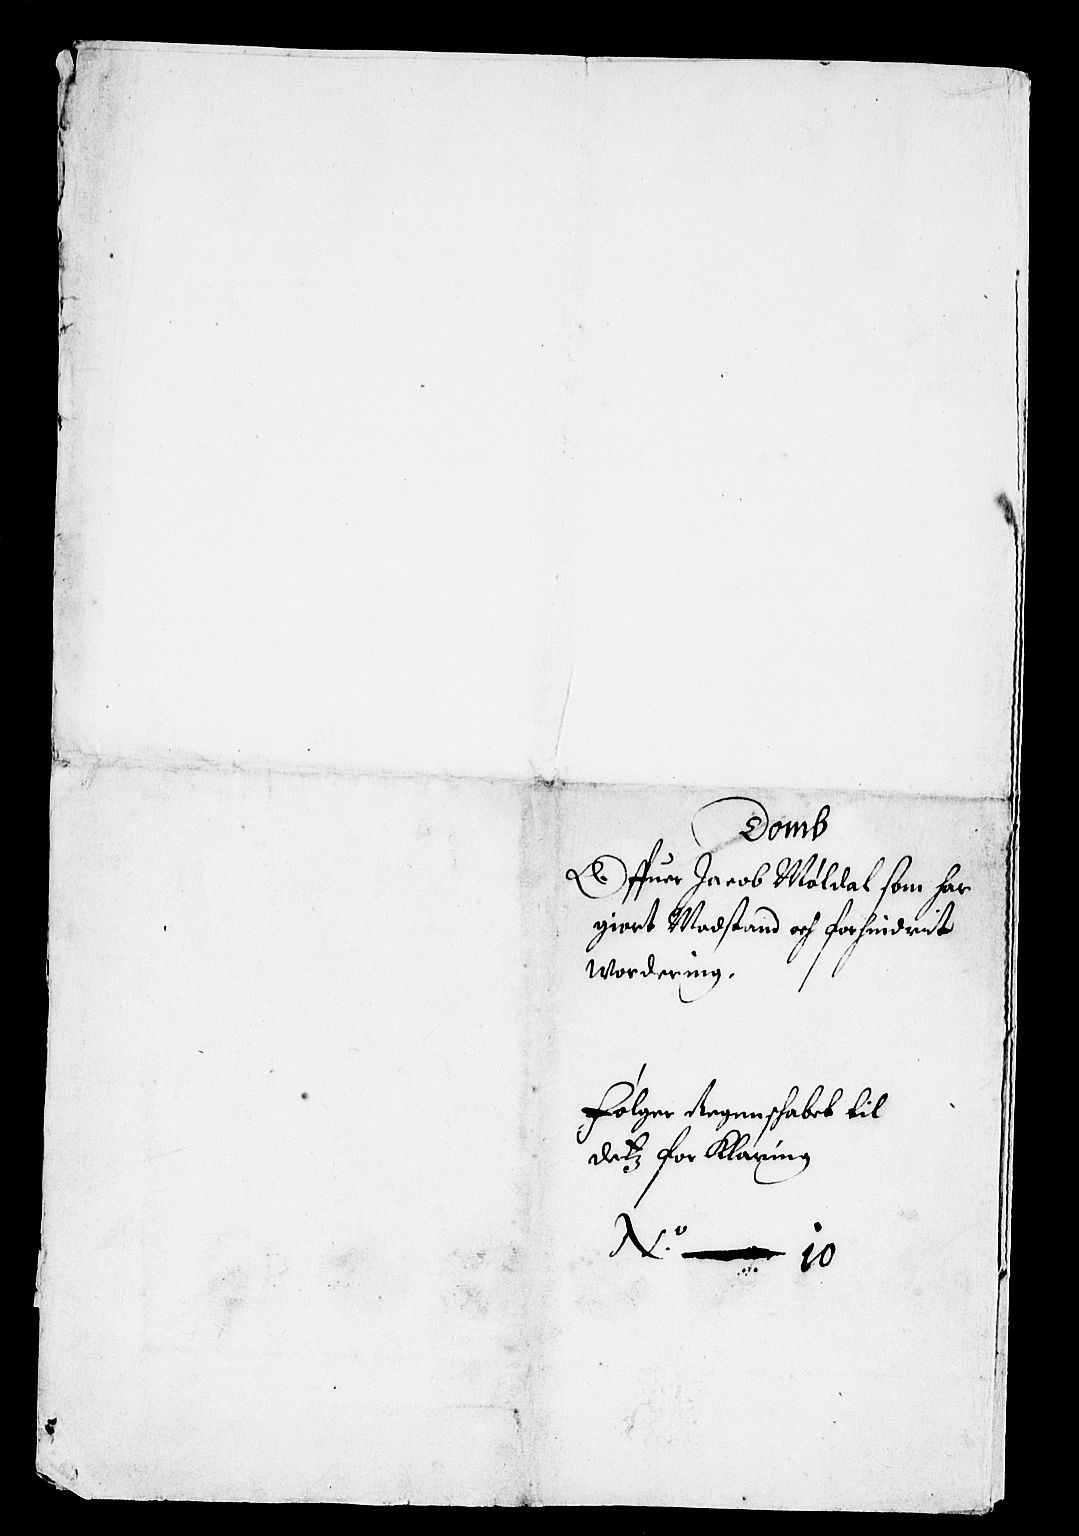 Domb
Offuer Jacob Møldal som har
giort Modstand och forhindrit
wordering.
Følger Regenschabet til
detz for Klaring
N.o 10